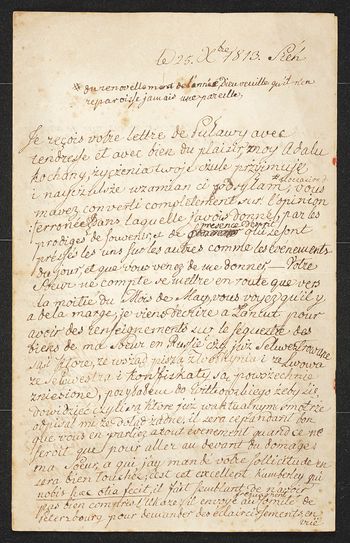 le 25. Xbre 1813. Sień
* du renouvellement de l'année, Dieu veuille qu'il n'en
reparoisse jamais une pareille,
Je reçois votre lettre de Pulawy avec
tendresse et avec bien du plaisir, moy Adalu
kochany, życzenia twoje czule przyjmuję
i najczulsze wzamian ci posyłam, vous
m'avez converti complètement sur l'opinion
erronée dans laquelle j'avois donné, par les
prodiges de souvenir, et de présence d'esprit
pressés les uns sur les autres comme les évenements
du jour, et que vous venez de me donner, — Votre
Soeur ne compte se mettre en route que vers
la moitié du Mois de May, vous voyez qu'il y
a de la marge, je viens d'écrire a Lancut pour
avoir des renseignements sur le sequestre des
biens de ma Soeur en Russie czy już
są które, ze wsząd piszą z Wołynia i ze Lwowa
ze sekwestra i konfiskaty są powszechnie
zniesione, posyłałem do Witkowskiego żeby się
dowiedzieć czyli są ktore już w aktualnym
odpisał mi że dotąd żadne, il sera cependant bon
que vous en parliez a tout évenement quand ce ne
seroit que pour aller au devant du domage
ma Soeur, a qui j'ay mandé votre sollicitude en
sera bien touchée, c'est cet excellent Kamberley qui
nobis haec otia fecit, il fait semblant de n'avoir
pas bien compris l'ukaze, il envoye au Comité de
Petersbourg pour demander des éclaircissements, en